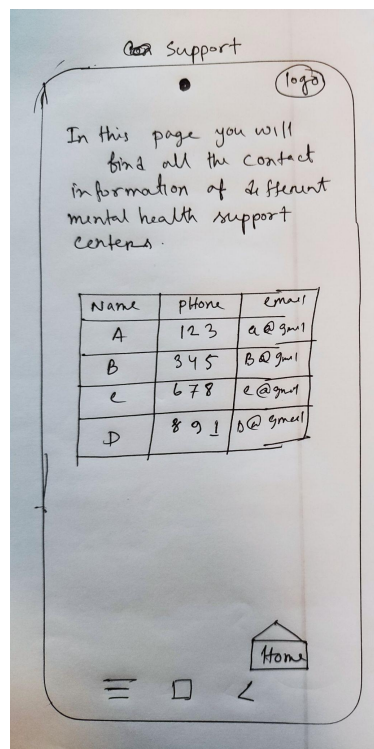 Support
logo
In this page you will
find all the contact
information of different
mental health support
centers.
Name Phone email
A 123 a@gmail
B 345 B@gmil
c 678 c@gmail
D 891 D@gmeil
Home